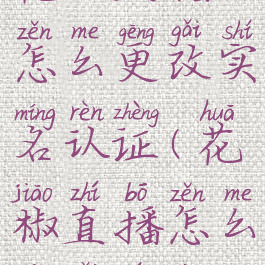 zěn me gēng gǎi shí
怎么更改实
míng rèn zhèng huā
名认证(花
jiāo zhí bō zěn me
椒直播怎么